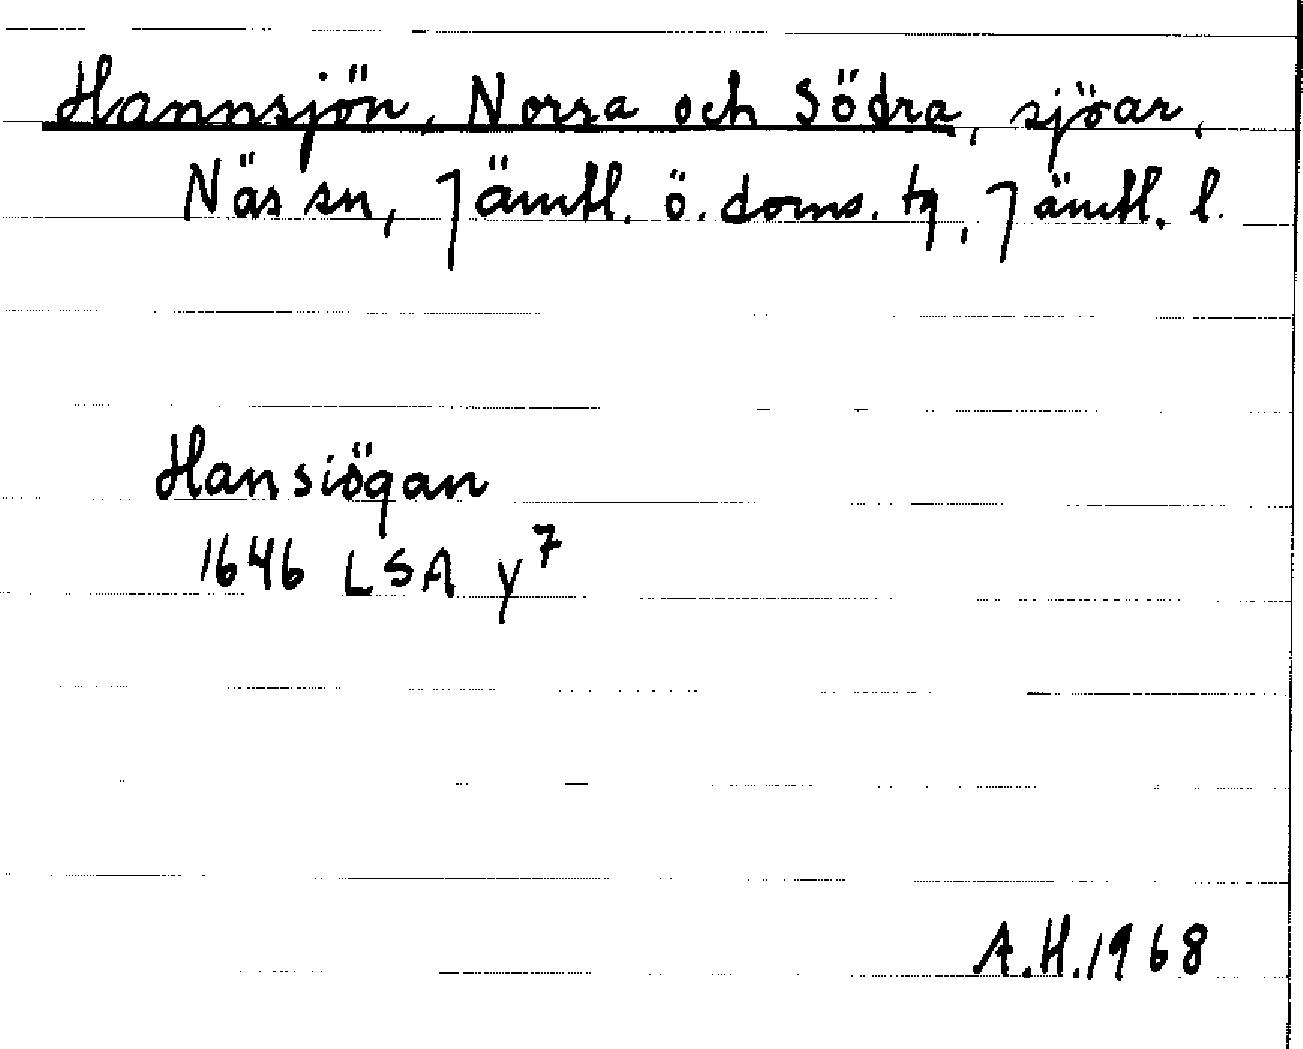 Hannsjön, Norra och Södra, sjöar,
Näs sn, Jämtl. ö. doms. tg, Jämtl. l.
Hansiögan
1646 LSA y⁷
A.H. 1968